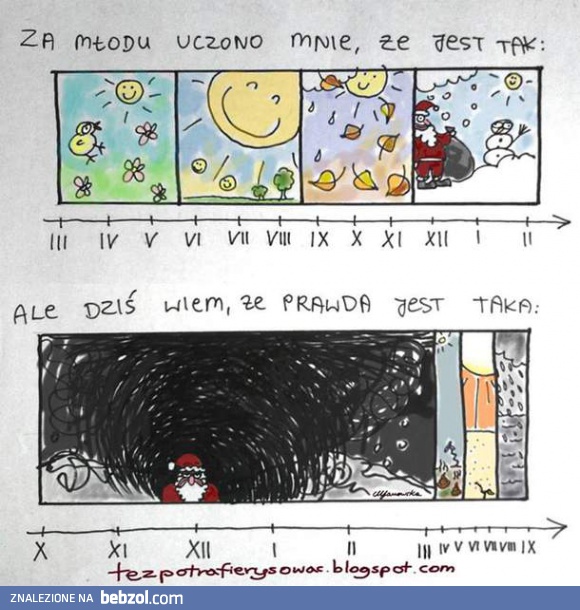 ZA MŁODU UCZONO MNIE, ŻE JEST TAK:
III IV V VI VII VIII IX X XI XII I II
ALE DZIŚ WIEM, ŻE PRAWDA JEST TAKA:
X XI XII I II III IV V VI VII VIII IX
tezpotrafierysowac.blogspot.com
ZNALEZIONE NA bebzol.com